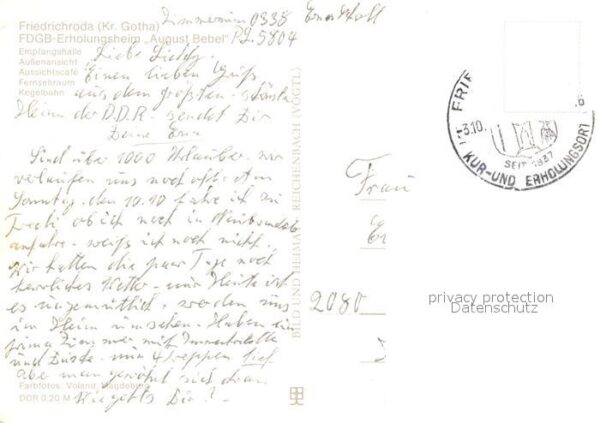 Friedrichroda (Kr. Gotha)
FDGB-Erholungsheim „August Bebel"
Empfangshalle
Außenansicht
Aussichtscafé
Fernsehraum
Kegelbahn
Zimmer 0338
5804
Liebe
Einen lieben Gruß
aus dem größten
Heim der D.D.R. sendet Dir
Deine
Sind über 1000 Urlauber. wir
verlaufen uns noch oft. Am
Sonntag, den 10.10 fahre ich zu
ob ich noch in
anfahre, weiß ich noch nicht.
Wir hatten die paar Tage noch
herrliches Wetter. nur Heute ist
es ungemütlich, werden uns
im Heim umsehen. Haben ein
prima Zimmer mit
und Dusche. nur 4 Treppen tief
aber man gewöhnt sich dran.
Wie gehts Dir?
Farbfotos: Voland, Magdeburg
DDR 0,20 M
BILD UND HEIMAT REICHENBACH (VOGTL)
Frau
2080
FRIE
3.10.
SEIT 1837
KUR-UND ERHOLUNGSORT
privacy protection
Datenschutz